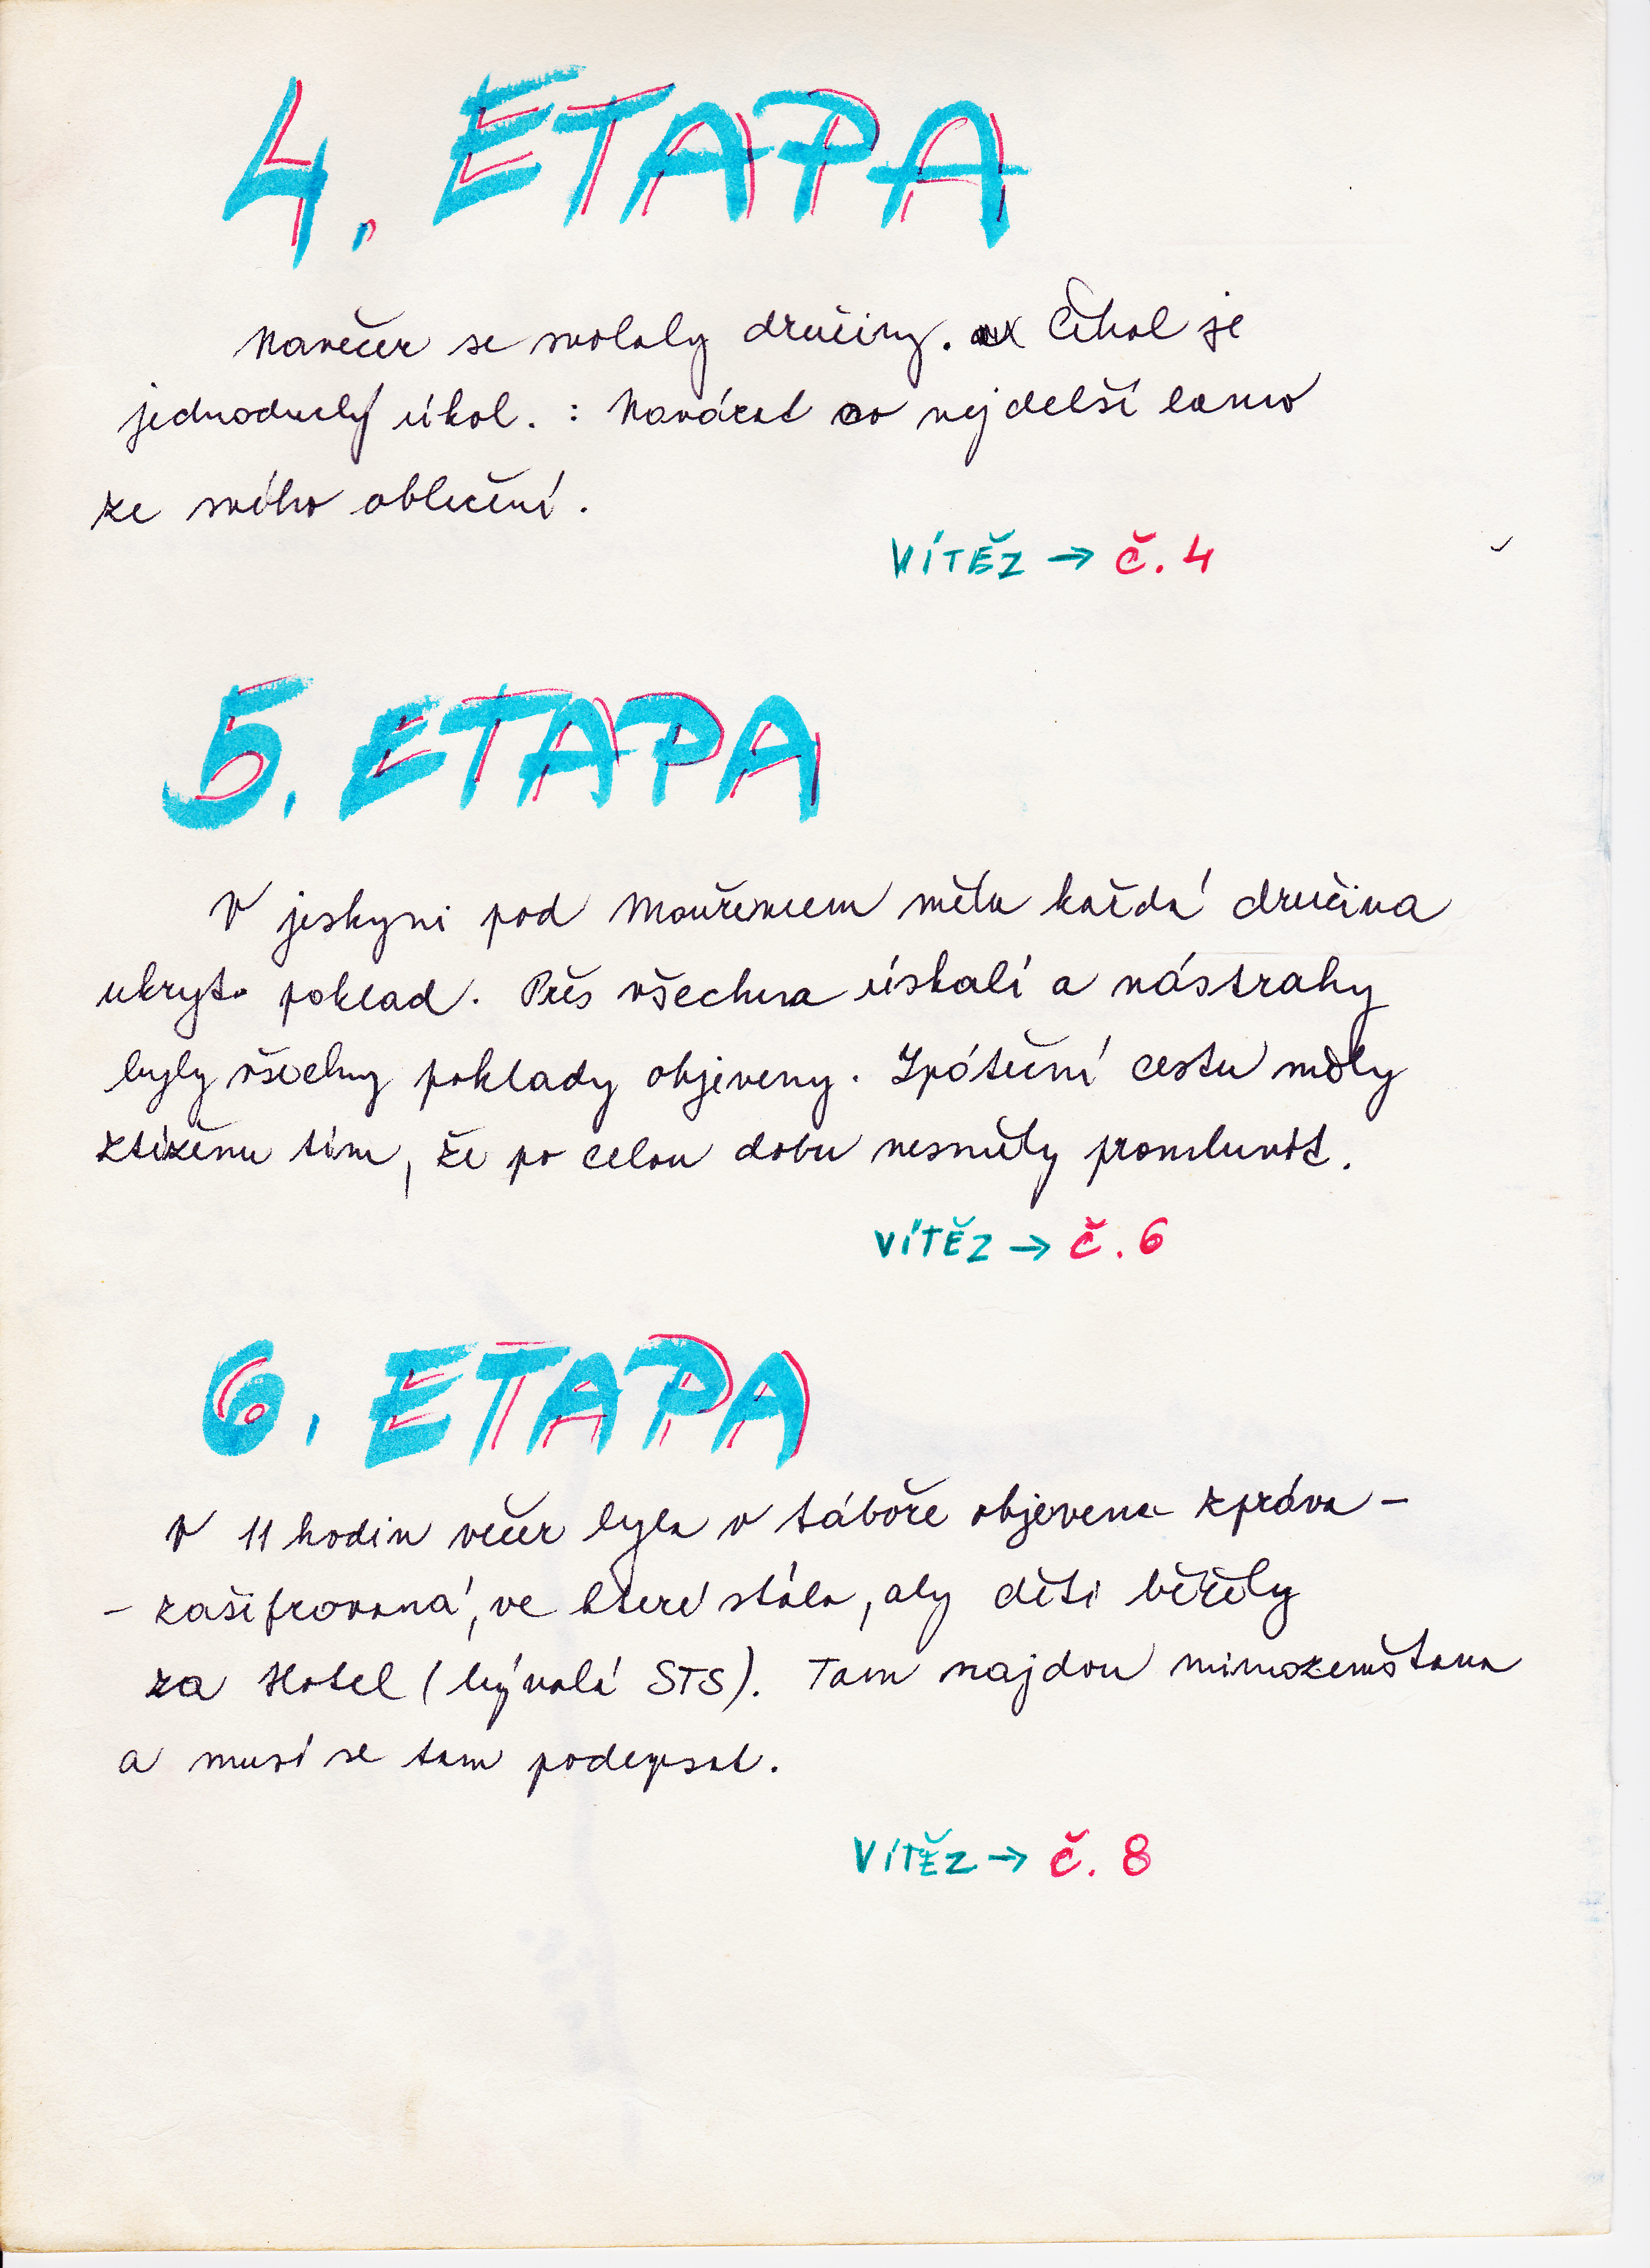 4. ETAPA
Navečer se svolaly družiny. Čekal je
jednoduchý úkol. : Navázat co nejdelší lano
ze svého oblečení.
VÍTĚZ → č. 4
5. ETAPA
V jeskyni pod Mouřencem měla každá družina
ukryt poklad. Přes všechna úskalí a nástrahy
byly všechny poklady objeveny. Zpáteční cestu měly
ztíženu tím, že po celou dobu nesměly promluvit.
VÍTĚZ → č. 6
6. ETAPA
V 11 hodin večer byla v táboře objevena zpráva -
- zašifrovaná, ve které stálo, aby děti běžely
za Hotel (bývalá STS). Tam najdou mimozemšťana
a musí se tam podepsat.
VÍTĚZ → č. 8